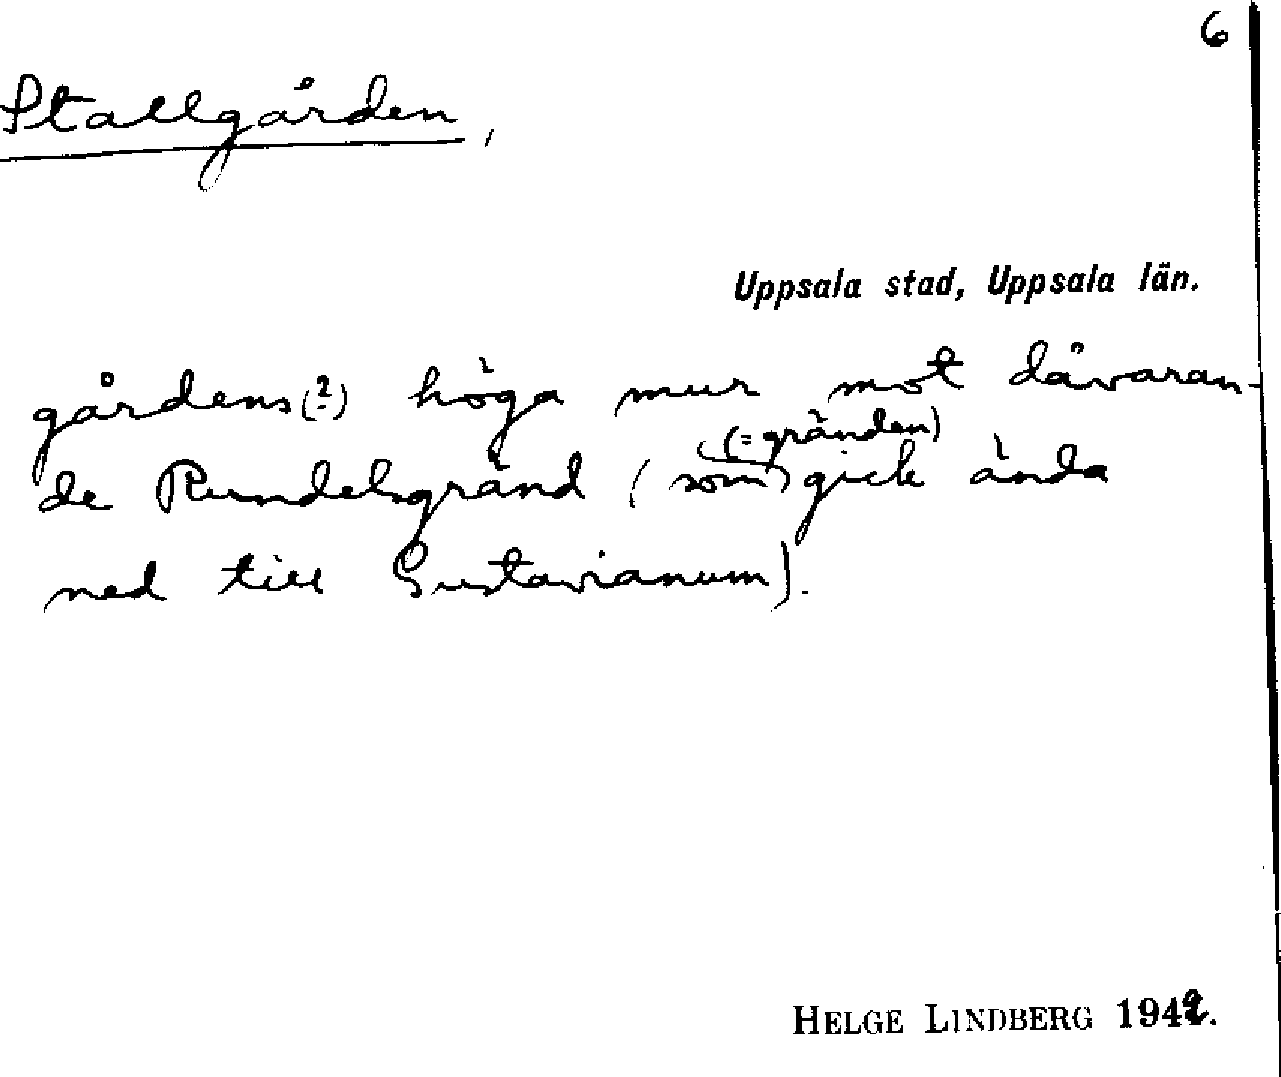 6
Stallgården,
Uppsala stad, Uppsala län.
gårdens(?) höga mur mot dåvaran-
(=gränden)
de Rundelsgränd (som gick ända
ned till Gustavianum).
HELGE LINDBERG 1942.